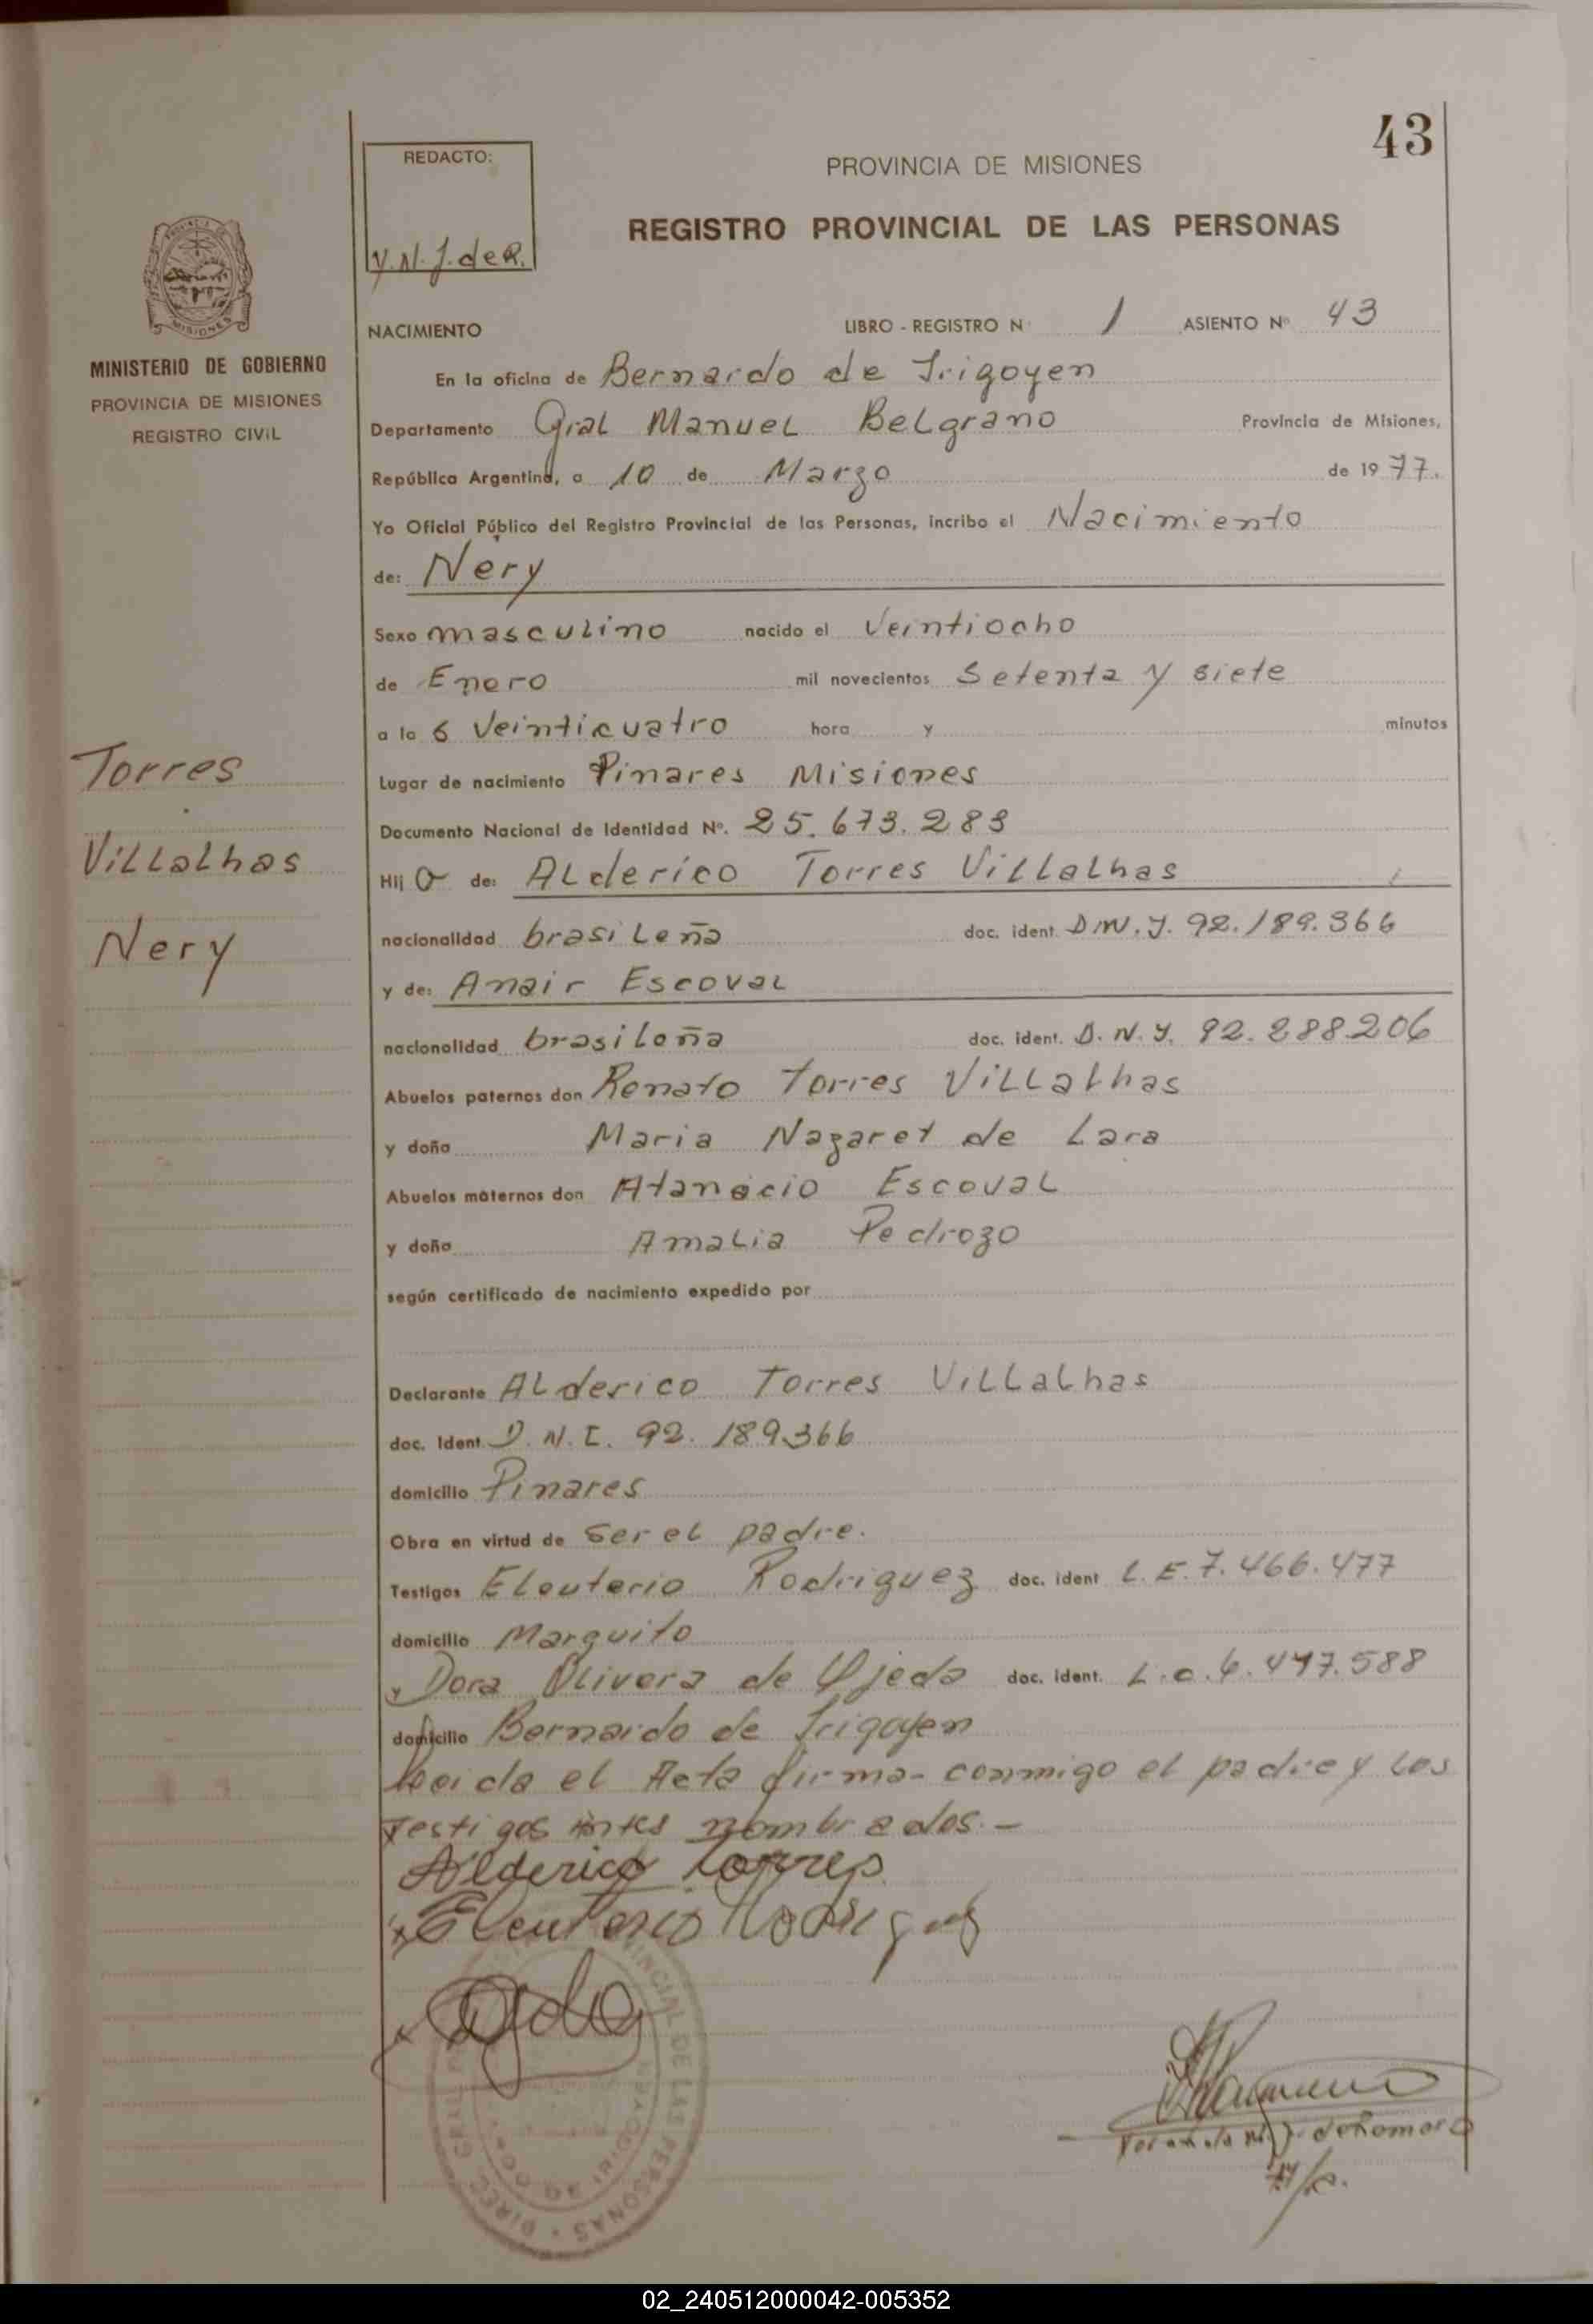 43
REDACTO:
Y.N.J. de R.
PROVINCIA DE MISIONES
REGISTRO PROVINCIAL DE LAS PERSONAS
MISIONES
MINISTERIO DE GOBIERNO
PROVINCIA DE MISIONES
REGISTRO CIVIL
NACIMIENTO LIBRO - REGISTRO N 1 ASIENTO Nº 43
En la oficina de Bernardo de Irigoyen
Departamento Gral Manuel Belgrano Provincia de Misiones,
República Argentina, a 10 de Marzo de 1977.
Yo Oficial Público del Registro Provincial de las Personas, incribo el Nacimiento
de: Nery
Sexo masculino nacido el Veintiocho
de Enero mil novecientos Setenta y siete
a la s Veinticuatro hora y minutos
Lugar de nacimiento Pinares Misiones
Documento Nacional de Identidad Nº. 25.673.283
Hij o de: Alderico Torres Villalhas
nacionalidad brasileña doc. ident. D.N.J. 92.189.366
y de: Anair Escoval
nacionalidad brasileña doc. ident. D.N.J. 92.288.206
Abuelos paternos don Renato Torres Villalhas
y doña Maria Nazaret de Lara
Abuelos maternos don Atanacio Escoval
y doña Amalia Pedrozo
según certificado de nacimiento expedido por
Declarante Alderico Torres Villalhas
doc. Ident. D.N.I. 92.189.366
domicilio Pinares
Obra en virtud de ser el padre.
Testigos Eleuterio Rodriguez doc. ident L.E. 7.466.477
domicilio Marquito
y Dora Olivera de Ojeda doc. ident. L.C. 6.447.588
domicilio Bernardo de Irigoyen
leida el Acta firma- conmigo el padre y los
Testigos antes nombrados.-
Alderico Torres
x Eleuterio Rodriguez
Torres
Villalhas
Nery
02_240512000042-005352